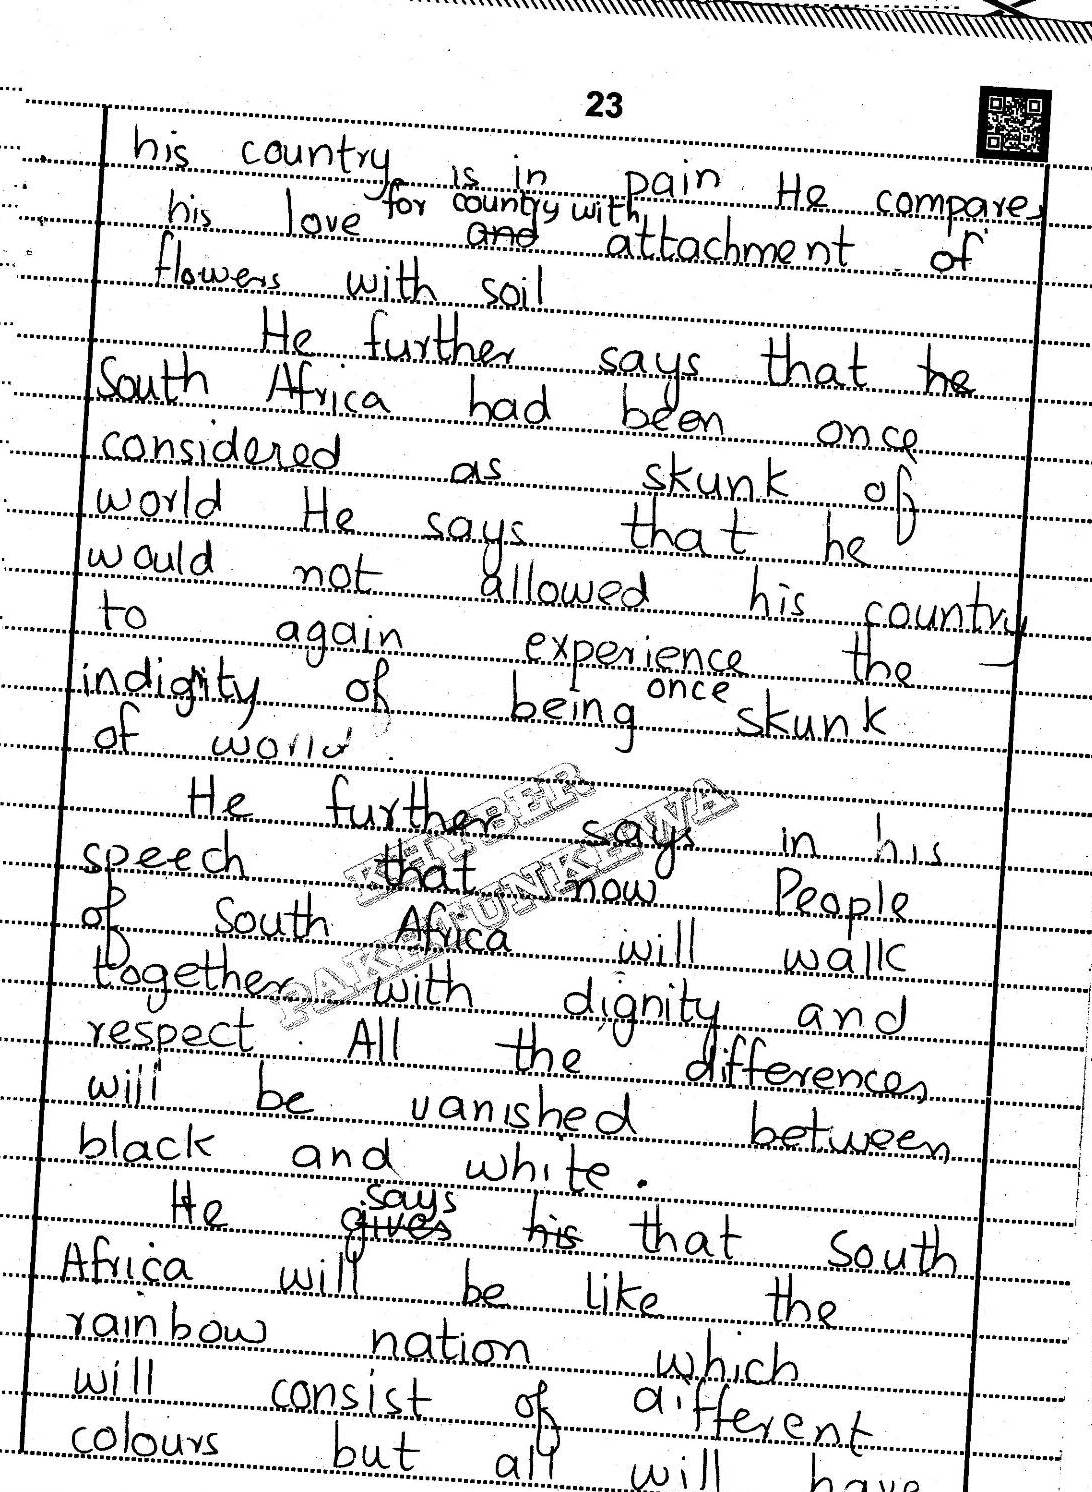 23
his country is in pain. He compares
his love for country with and attachment of
flowers with soil
He further says that he
South Africa had been once
considered as skunk of
world He says that he
would not allowed his country
to again experience the
indignity of being once skunk
of world.
He further says in his
speech that now People
of South Africa will walk
together with dignity and
respect. All the differences
will be vanished between
black and white.
He gives says his that South
Africa will be like the
rainbow nation which
will consist of different
colours but all will have
KHYBER
PAKHTUNKHWA